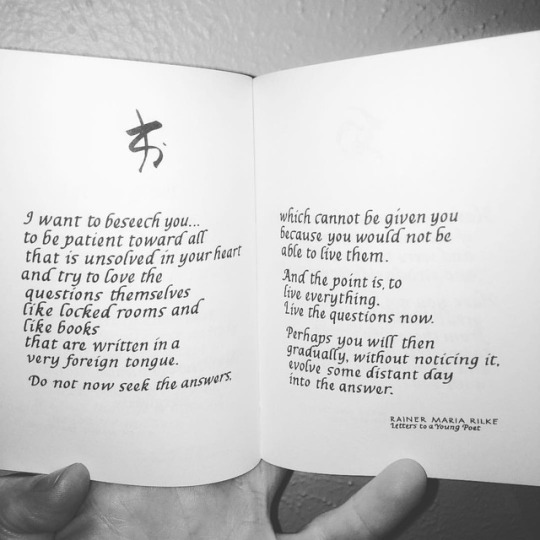 I want to beseech you...
to be patient toward all
that is unsolved in your heart
and try to love the
questions themselves
like locked rooms and
like books
that are written in a
very foreign tongue.
Do not now seek the answers,
which cannot be given you
because you would not be
able to live them.
And the point is, to
live everything.
Live the questions now.
Perhaps you will then
gradually, without noticing it,
evolve some distant day
into the answer.
RAINER MARIA RILKE
Letters to a Young Poet